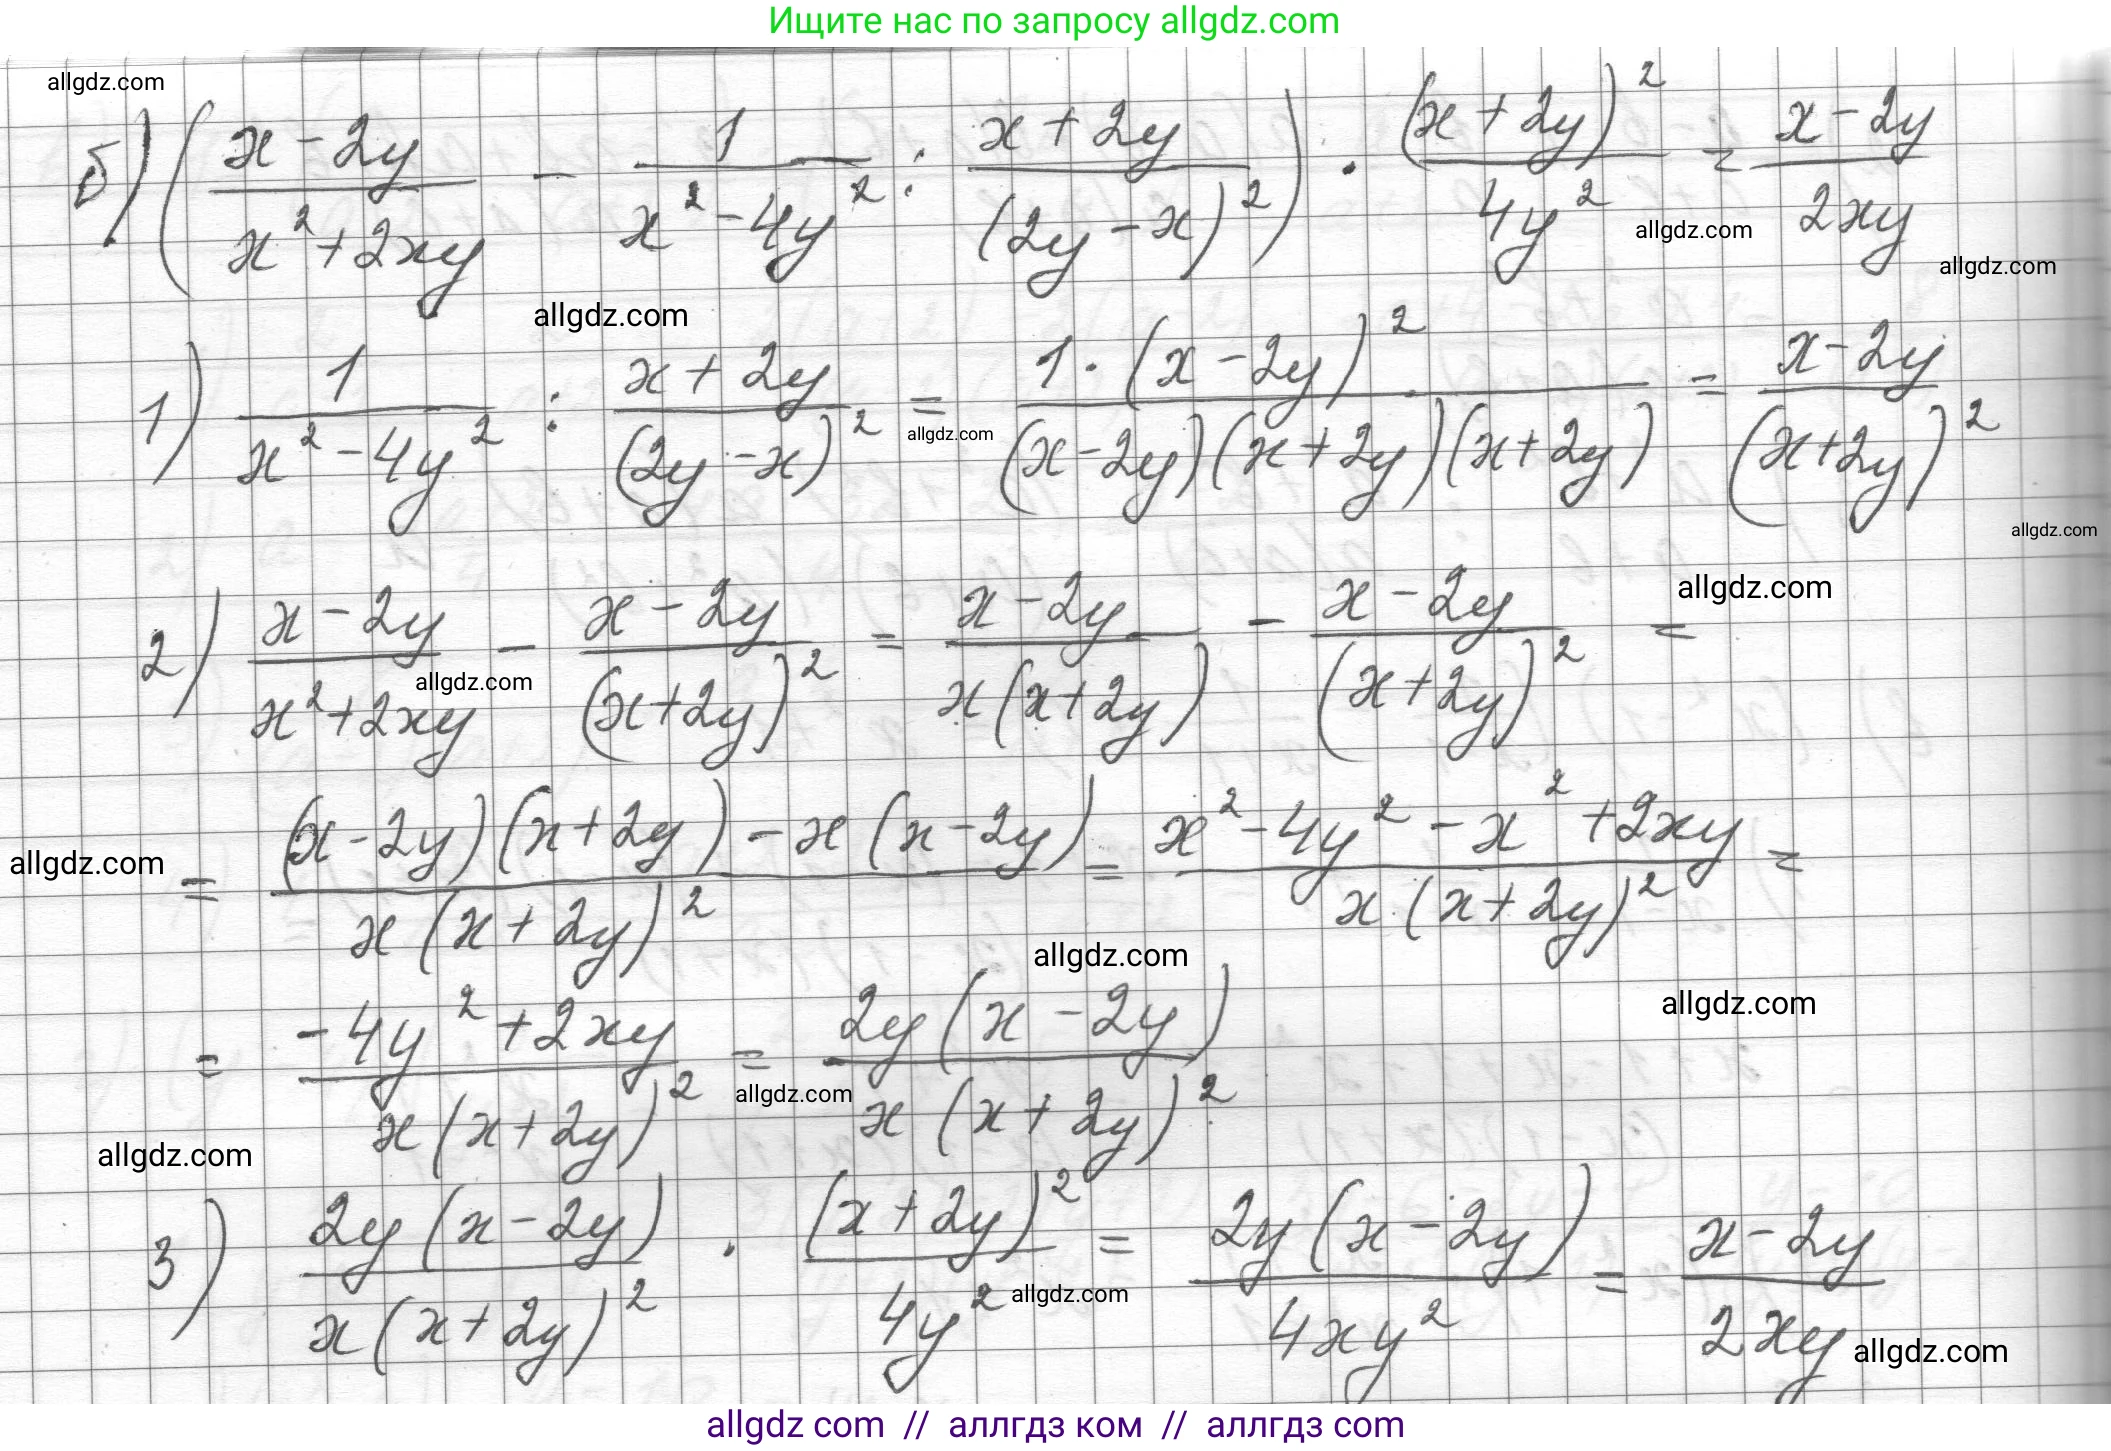 Ищите нас по запросу allgdz.com
allgdz.com
б) ((x - 2y)/(x² + 2xy) - 1/(x² - 4y²) : (x + 2y)/(2y - x)²) · (x + 2y)²/(4y²) = (x - 2y)/(2xy)
allgdz.com
allgdz.com
allgdz.com
1) 1/(x² - 4y²) : (x + 2y)/(2y - x)² = (1 · (x - 2y)²)/((x - 2y)(x + 2y)(x + 2y)) = (x - 2y)/(x + 2y)²
allgdz.com
allgdz.com
allgdz.com
2) (x - 2y)/(x² + 2xy) - (x - 2y)/(x + 2y)² = (x - 2y)/(x(x + 2y)) - (x - 2y)/(x + 2y)² =
allgdz.com
allgdz.com
= ((x - 2y)(x + 2y) - x(x - 2y))/(x(x + 2y)²) = (x² - 4y² - x² + 2xy)/(x(x + 2y)²) =
allgdz.com
allgdz.com
= (-4y² + 2xy)/(x(x + 2y)²) = (2y(x - 2y))/(x(x + 2y)²)
allgdz.com
allgdz.com
3) (2y(x - 2y))/(x(x + 2y)²) · (x + 2y)²/(4y²) = (2y(x - 2y))/(4xy²) = (x - 2y)/(2xy)
allgdz.com
allgdz.com
allgdz com // аллгдз ком // аллгдз com